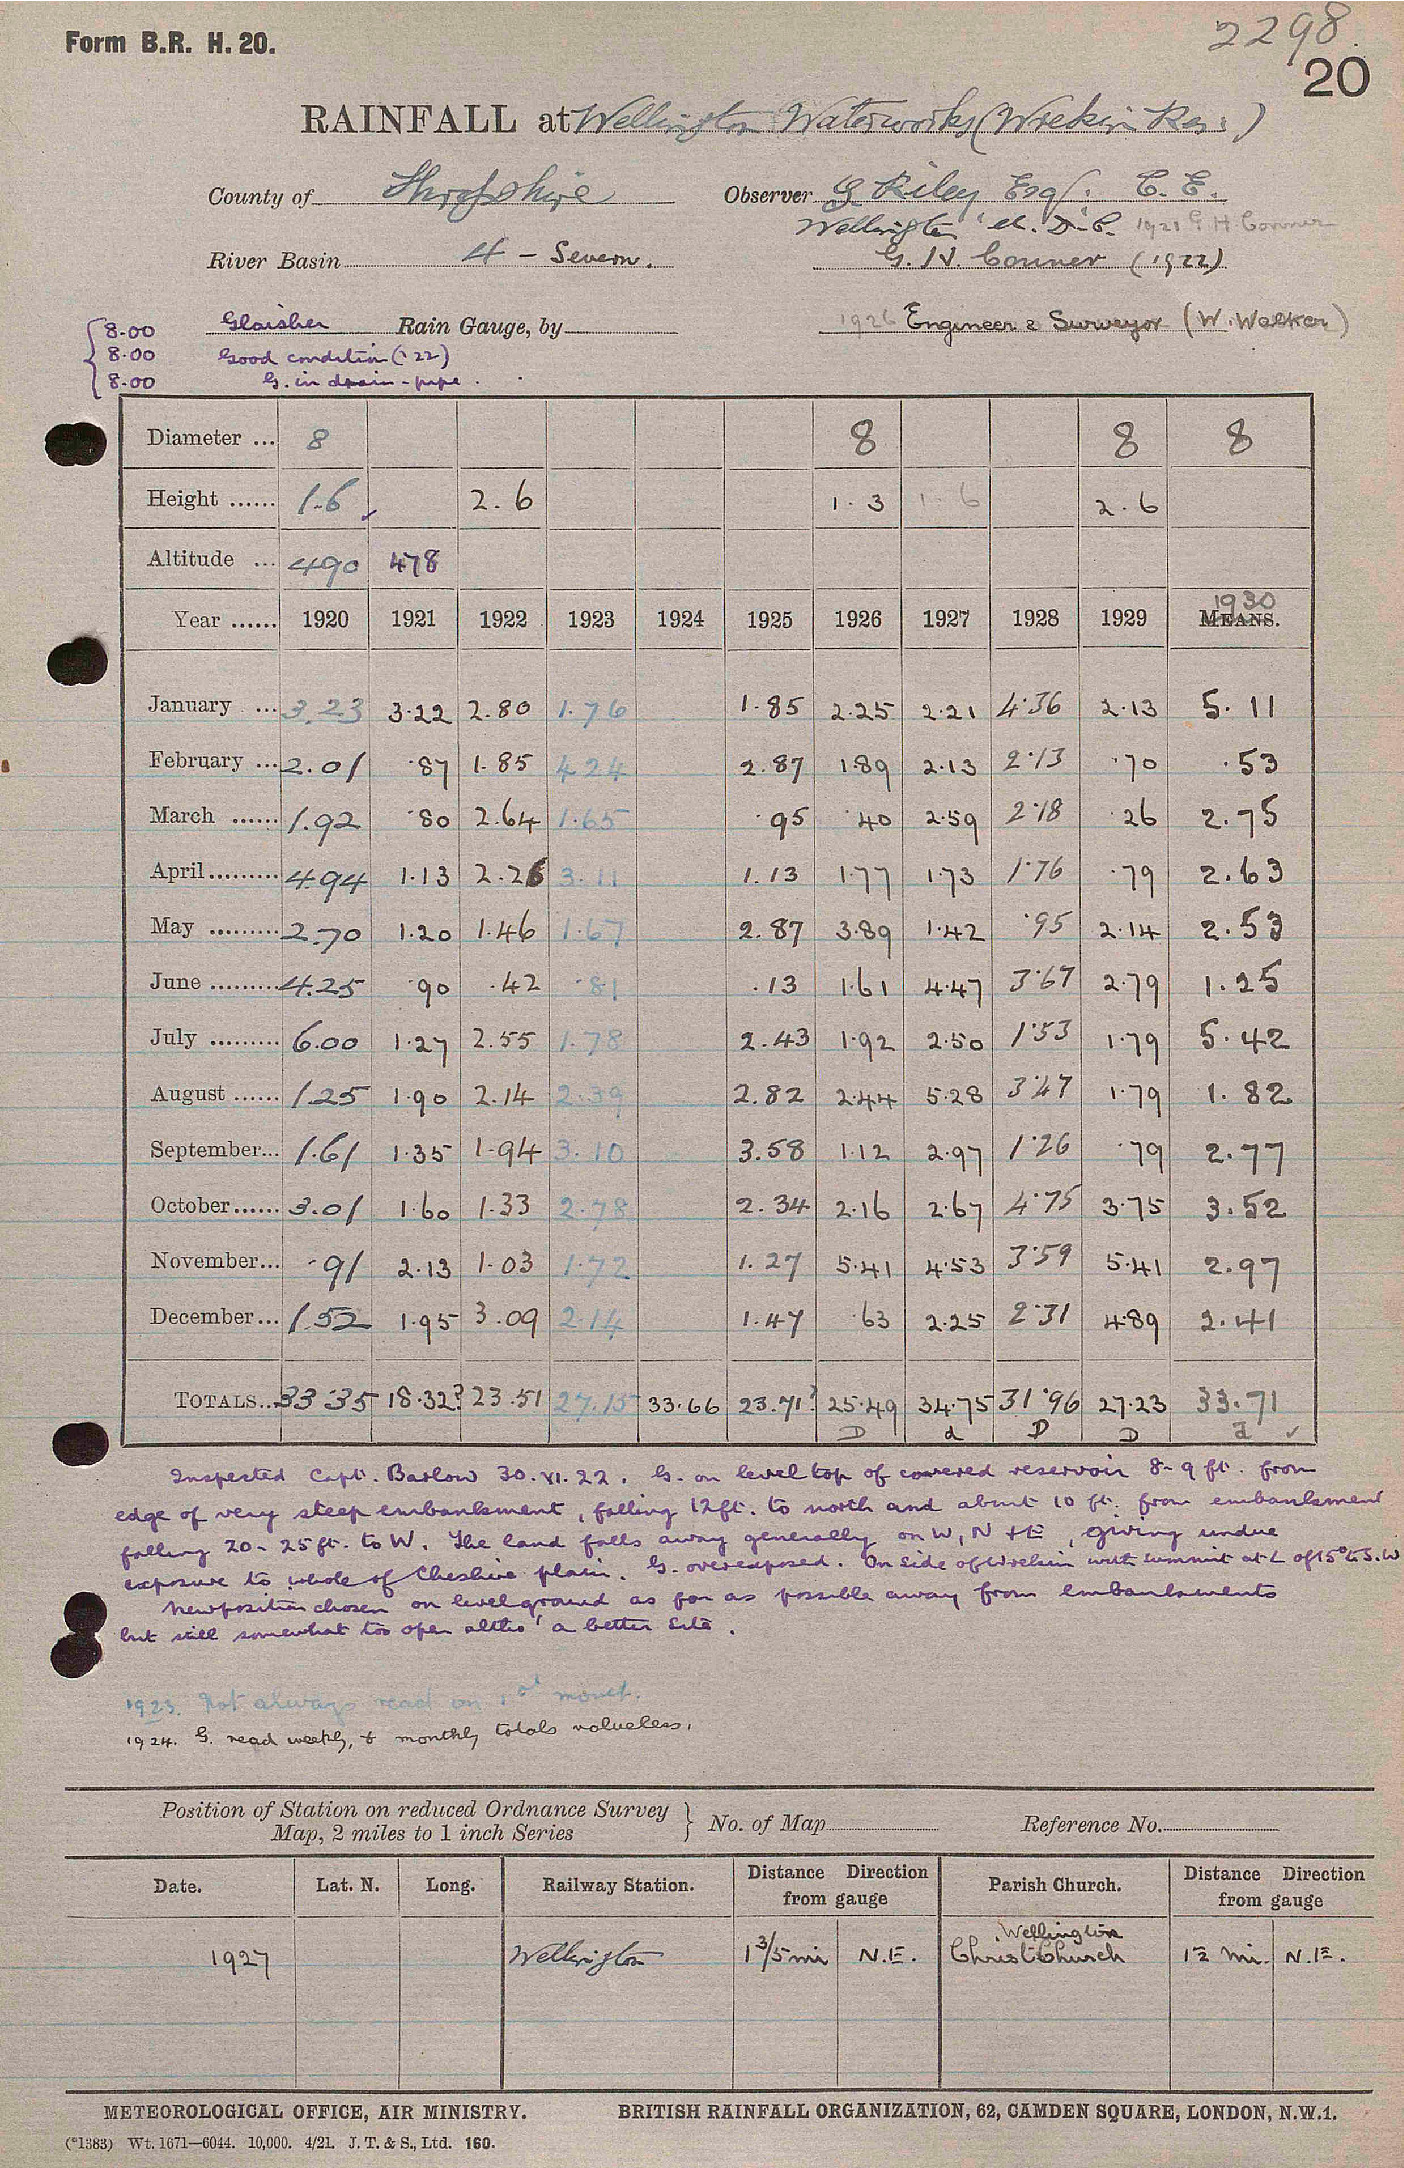 Form B.R. H. 20.
2298.
20
RAINFALL at Wellington Waterworks (Wrekin Res.)
County of Shropshire Observer G. Riley Esq. C. E.
Wellington U. D. C. 1921 G H. Conner
River Basin 4 - Severn. G. H. Conner (1922)
8.00 Glaisher Rain Gauge, by 1926 Engineer & Surveyor (W. Walker)
8.00 Good condition ('22)
8.00 G. in drain-pipe.
Diameter ... 8 8 8 8
Height ...... 1.6 2.6 1.3 1.6 2.6
Altitude ... 490 478
Year ...... 1920 1921 1922 1923 1924 1925 1926 1927 1928 1929 MEANS. 1930
January ... 3.23 3.22 2.80 1.76 1.85 2.25 2.21 4.36 2.13 5.11
February ... 2.01 .87 1.85 4.24 2.87 1.89 2.13 2.13 .70 .53
March ...... 1.92 .80 2.64 1.65 .95 .40 2.59 2.18 .26 2.75
April ......... 4.94 1.13 2.26 3.11 1.13 1.77 1.73 1.76 .79 2.63
May ......... 2.70 1.20 1.46 1.67 2.87 3.89 1.42 .95 2.14 2.53
June ......... 4.25 .90 .42 .81 .13 1.61 4.47 3.67 2.79 1.25
July ......... 6.00 1.27 2.55 1.78 2.43 1.92 2.50 1.53 1.79 5.42
August ...... 1.25 1.90 2.14 2.39 2.82 2.44 5.28 3.47 1.79 1.82
September... 1.61 1.35 1.94 3.10 3.58 1.12 2.97 1.26 .79 2.77
October ...... 3.01 1.60 1.33 2.78 2.34 2.16 2.67 4.75 3.75 3.52
November... .91 2.13 1.03 1.72 1.27 5.41 4.53 3.59 5.41 2.97
December ... 1.52 1.95 3.09 2.14 1.47 .63 2.25 2.31 4.89 2.41
TOTALS... 33.35 18.32? 23.51 27.15 33.66 23.71? 25.49 34.75 31.96 27.23 33.71
D d D D d ✓
Inspected Capt. Barlow 30.VI.22. G. on level top of covered reservoir 8-9 ft. from
edge of very steep embankment, falling 12ft. to north and about 10 ft. from embankment
falling 20-25ft. to W. The land falls away generally on W, N + E, giving undue
exposure to whole of Cheshire plain. G. overexposed. On side of Wrekin with summit at ∠ of 15° to S.W
New position chosen on level ground as far as possible away from embankments
but still somewhat too open altho' a better site.
1923. Not always read on 1st of month.
1924. G. read weekly, & monthly totals valueless.
Position of Station on reduced Ordnance Survey
Map, 2 miles to 1 inch Series } No. of Map Reference No.
Date. Lat. N. Long. Railway Station. Distance Direction from gauge Parish Church. Distance Direction from gauge
1927 Wellington 1 3/5 mi N.E. Wellington Christ Church 1½ mi. N.E.
METEOROLOGICAL OFFICE, AIR MINISTRY. BRITISH RAINFALL ORGANIZATION, 62, CAMDEN SQUARE, LONDON, N.W.1.
(*1383) Wt. 1671—6044. 10,000. 4/21. J. T. & S., Ltd. 160.